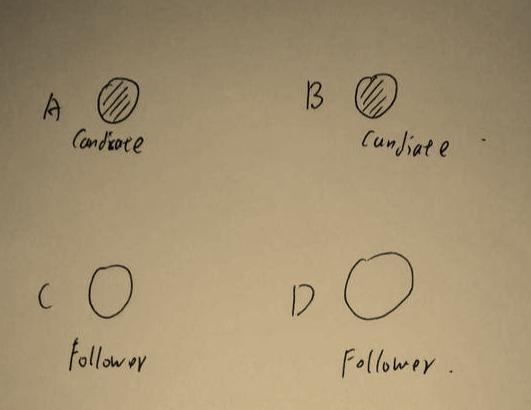 A
B
Candiate
Candiate
C
D
Follower
Follower.